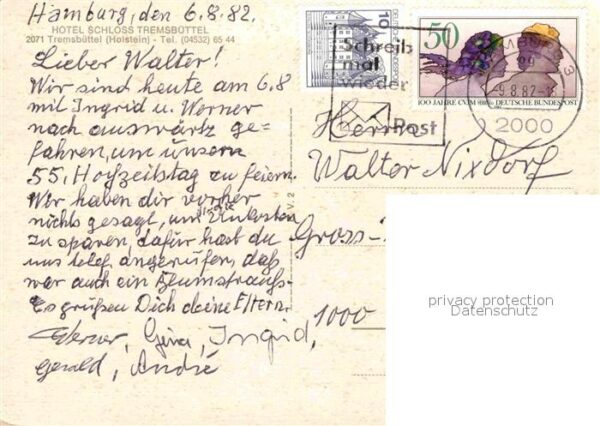 Hamburg, den 6.8.82.
HOTEL SCHLOSS TREMSBÜTTEL
2071 Tremsbüttel (Holstein) - Tel. (04532) 65 44
Lieber Walter!
Wir sind heute am 6.8
mit Ingrid u. Werner
nach auswärtz ge-
fahren, um unsern
55. Hofzeitstag zu feiern.
Wir haben dir vorher
nichts gesagt, um Unkosten
zu sparen, dafür hast du
uns telef. angerufen, daß
war auch ein Blumstrauß.
Es grüßen Dich deine Eltern.
Werner, Ingrid,
Gerald, André
V. 2
10
DEUTSCHE BUNDESPOST
50
100 JAHRE CVJM DEUTSCHE BUNDESPOST
Schreib
mal
wieder
Post
HAMBURG
-9.8.82-
2000
Herrn
Walter Nixdorf
Gross-
1000
privacy protection
Datenschutz